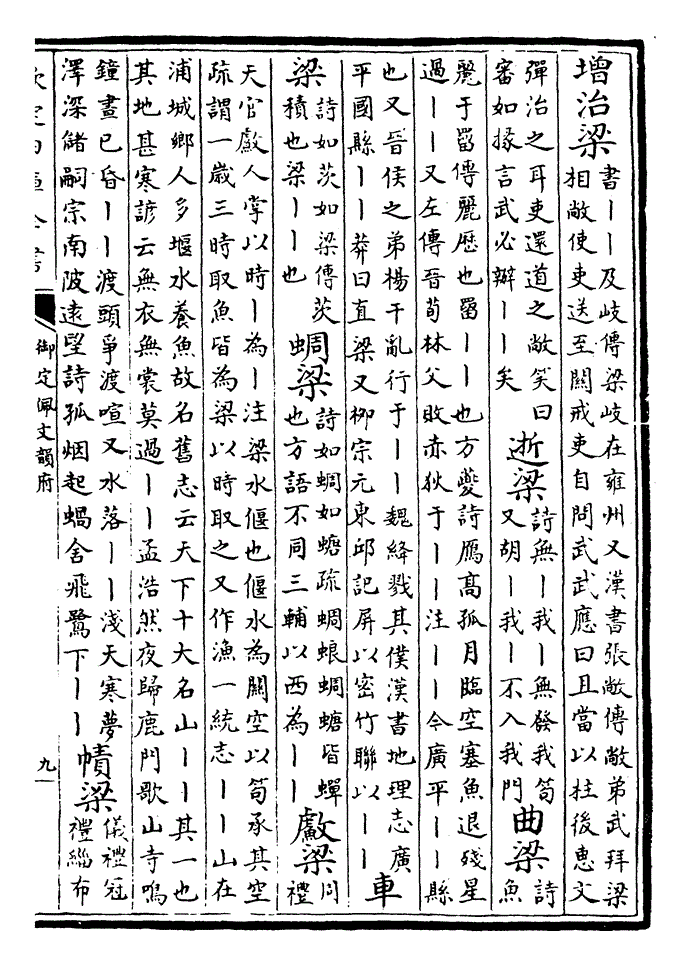 增治梁書丨丨及岐傳梁岐在雍州又漢書張敞傳敞弟武拜梁
相敞使吏送至關戒吏自問武武應曰且當以柱後惠文
彈治之耳吏還道之敞笑曰
審如掾言武必辦丨丨矣
逝梁詩無丨我丨無發我笱
又胡丨我丨不入我門
曲梁詩
魚
麗于罶傳麗歷也罶丨丨也方夔詩鴈高孤月臨空塞魚退殘星
過丨丨又左傳晉荀林父敗赤狄于丨丨注丨丨今廣平丨丨縣
也又晉侯之弟楊干亂行于丨丨魏絳戮其僕漢書地理志廣
平國縣丨丨莽曰直梁又柳宗元東邱記屏以密竹聯以丨丨
車
梁詩如茨如梁傳茨
積也梁丨丨也
蜩梁詩如蜩如螗疏蜩蜋蜩螗皆蟬
也方語不同三輔以西為丨丨
䱷梁周
禮
天官䱷人掌以時丨為丨注梁水偃也偃水為關空以笱承其空
疏謂一歲三時取魚皆為梁以時取之又作漁一統志丨丨山在
浦城鄉人多堰水養魚故名舊志云天下十大名山丨丨其一也
其地甚寒諺云無衣無裳莫過丨丨孟浩然夜歸鹿門歌山寺鳴
鐘晝已昏丨丨渡頭爭渡喧又水落丨丨淺天寒夢
澤深儲嗣宗南陂遠望詩孤烟起蝸舍飛鷺下丨丨
幘梁儀禮冠
禮緇布
欽定四庫全書
御定佩文韻府
九